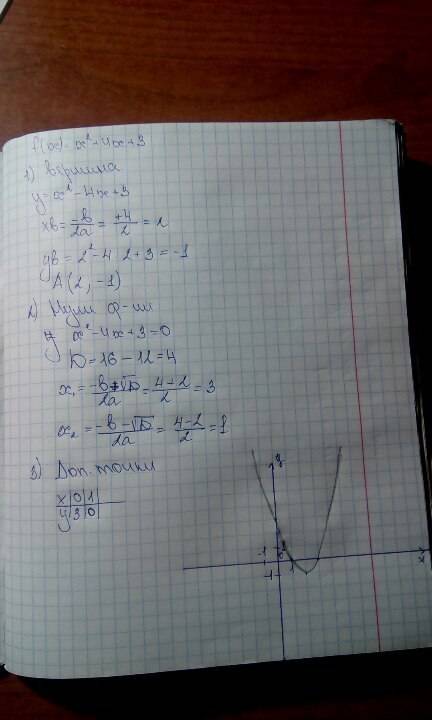 f(x) = x² - 4x + 3
1) Вершина
y = x² - 4x + 3
xв = -в/2a = +4/2 = 2
yв = 2² - 4 2 + 3 = -1
A (2, -1)
2) Нули ф-ии
y x² - 4x + 3 = 0
D = 16 - 12 = 4
x₁ = -в+√D/2a = 4-2/2 = 3
x₂ = -в-√D/2a = 4-2/2 = 1
3) Доп. точки
x 0 1
y 3 0
y
-1 1
0 1 x
-1